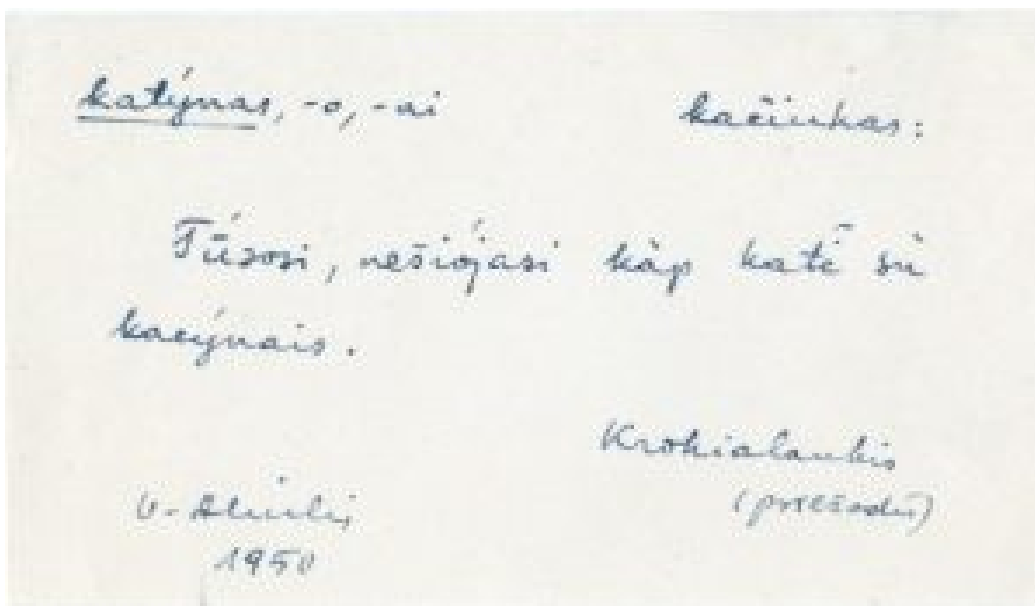 katýnas, -o, -ai kačiukas:
Tū́sosi, nešiójasi kàp katė̃ sù
kacýnais.
Krokialaukis
(priežodis)
V.
1950